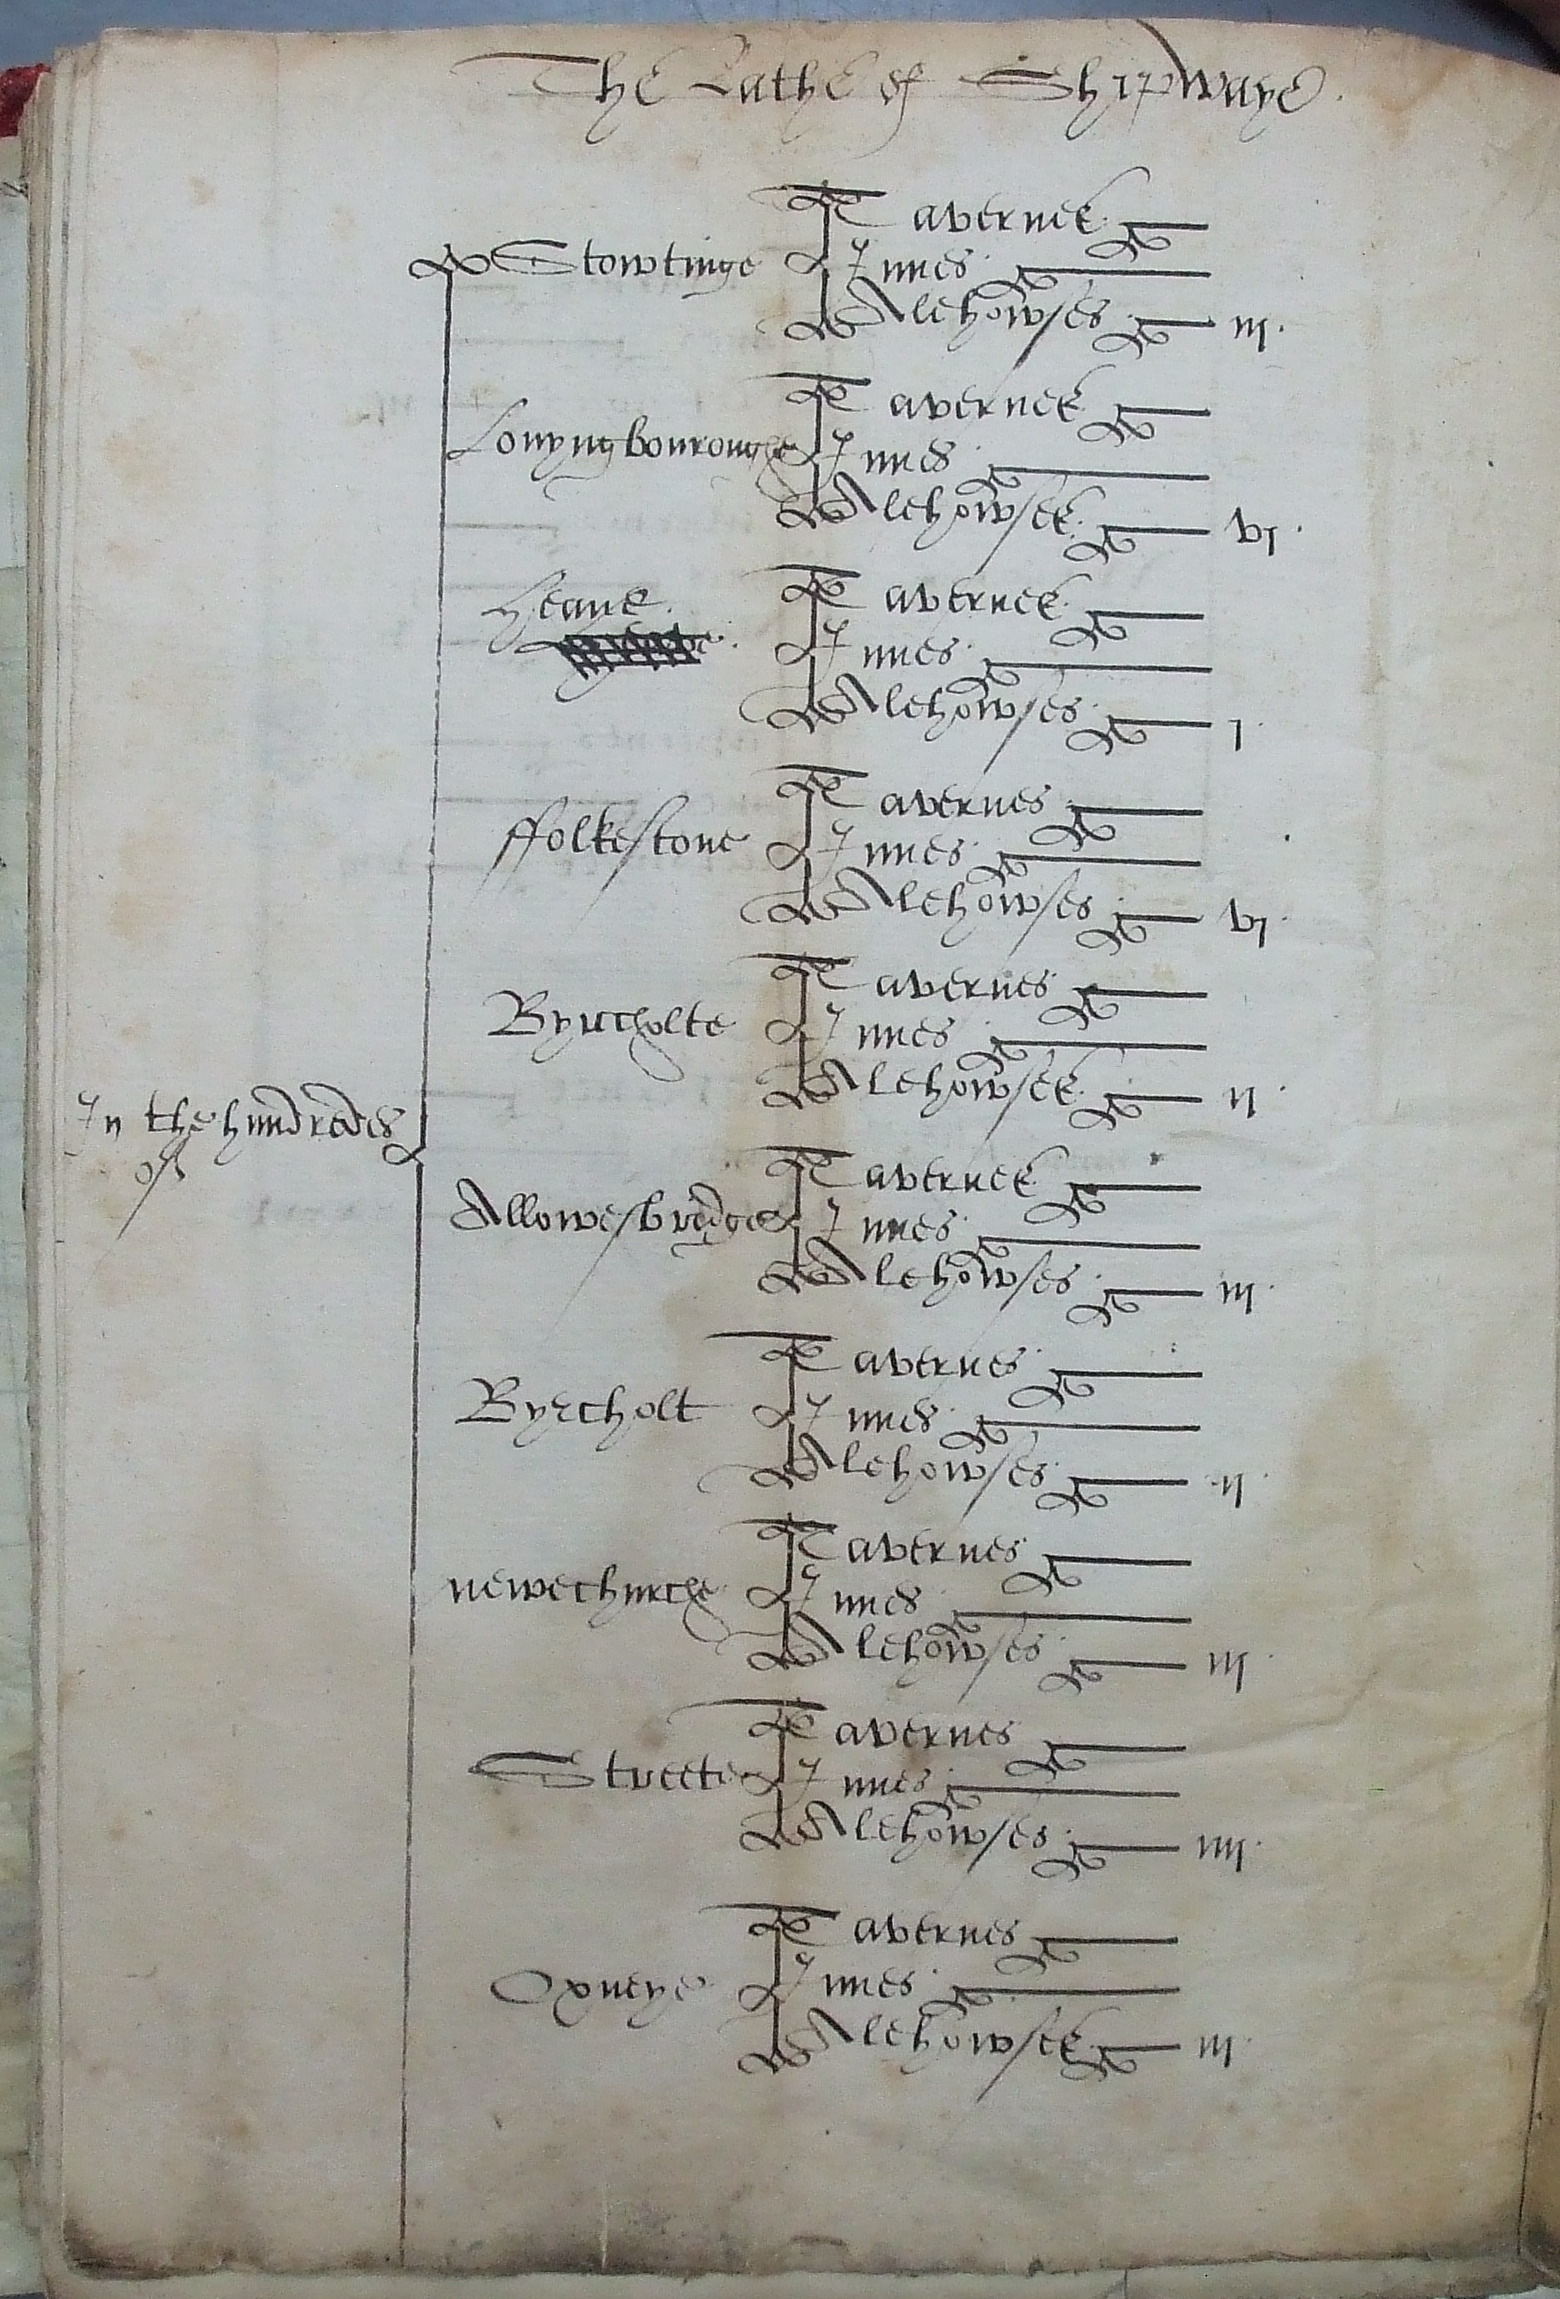 The Lathe of Shipwaye.
Tavernes
Stowtinge Innes
Alehowses iij.
Tavernes
Lonyngbouroughe Innes
Alehowses vj.
Heane. Tavernes
Innes
Alehowses j.
Tavernes
ffolkestone Innes
Alehowses vj.
Tavernes
Byrcholte Innes
Alehowses ij.
In the hundredes
of
Tavernes
Allowesbredge Innes
Alehowses iij.
Tavernes
Byrcholt Innes
Alehowses ij.
Tavernes
newechurche Innes
Alehowses iij.
Tavernes
Streete Innes
Alehowses iiij.
Tavernes
Oxneye Innes
Alehowses iij.